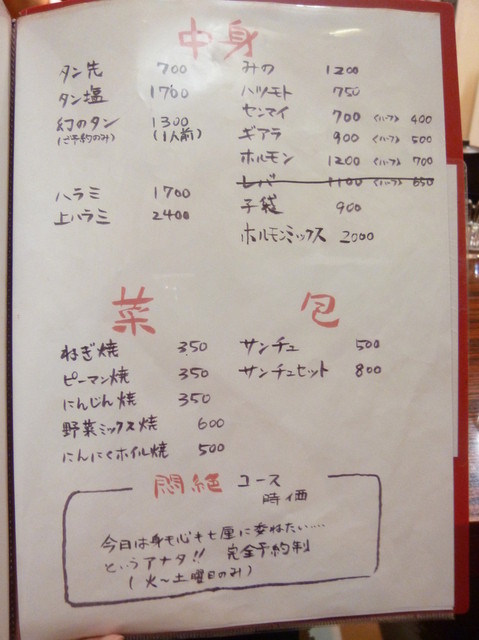 中身
タン先 700
タン塩 1700
幻のタン 1300
(ご予約のみ) (1人前)
ハラミ 1700
上ハラミ 2400
みの 1200
ハツモト 750
センマイ 700 〈ハーフ〉 400
ギアラ 900 〈ハーフ〉 500
ホルモン 1200 〈ハーフ〉 700
レバー 1100 〈ハーフ〉 650
子袋 900
ホルモンミックス 2000
菜
ねぎ焼 350
ピーマン焼 350
にんじん焼 350
野菜ミックス焼 600
にんにくホイル焼 500
包
サンチュ 500
サンチュセット 800
悶絶 コース
時価
今日は身も心も七厘に委ねたい‥‥
というアナタ!! 完全予約制
(火〜土曜日のみ)